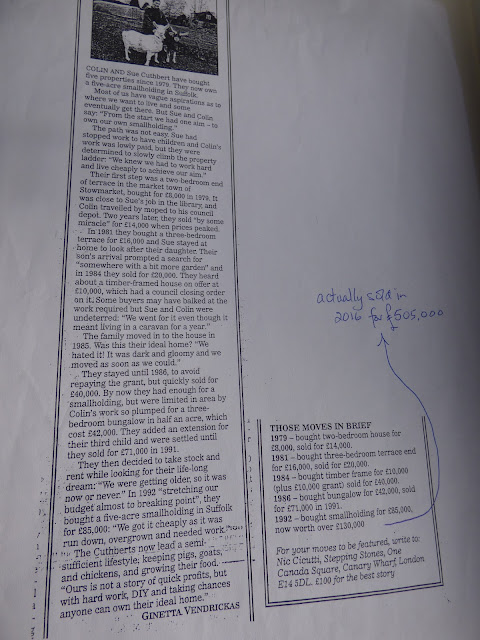 COLIN AND Sue Cuthbert have bought
five properties since 1979. They now own
a five-acre smallholding in Suffolk.
Most of us have vague aspirations as to
where we want to live and some
eventually get there. But Sue and Colin
say: "From the start we had one aim – to
own our own smallholding."
The path was not easy. Sue had
stopped work to have children and Colin's
work was lowly paid, but they were
determined to slowly climb the property
ladder: "We knew we had to work hard
and live cheaply to achieve our aim."
Their first step was a two-bedroom end
of terrace in the market town of
Stowmarket, bought for £8,000 in 1979. It
was close to Sue's job in the library, and
Colin travelled by moped to his council
depot. Two years later, they sold "by some
miracle" for £14,000 when prices peaked.
In 1981 they bought a three-bedroom
terrace for £16,000 and Sue stayed at
home to look after their daughter. Their
son's arrival prompted a search for
"somewhere with a bit more garden" and
in 1984 they sold for £20,000. They heard
about a timber-framed house on offer at
£10,000, which had a council closing order
on it. Some buyers may have balked at the
work required but Sue and Colin were
undeterred: "We went for it even though it
meant living in a caravan for a year."
The family moved in to the house in
1985. Was this their ideal home? "We
hated it! It was dark and gloomy and we
moved as soon as we could."
They stayed until 1986, to avoid
repaying the grant, but quickly sold for
£40,000. By now they had enough for a
smallholding, but were limited in area by
Colin's work so plumped for a three-
bedroom bungalow in half an acre, which
cost £42,000. They added an extension for
their third child and were settled until
they sold for £71,000 in 1991.
They then decided to take stock and
rent while looking for their life-long
dream: "We were getting older, so it was
now or never." In 1992 "stretching our
budget almost to breaking point", they
bought a five-acre smallholding in Suffolk
for £85,000: "We got it cheaply as it was
run down, overgrown and needed work."
The Cuthberts now lead a semi-
sufficient lifestyle; keeping pigs, goats,
and chickens, and growing their food.
"Ours is not a story of quick profits, but
with hard work, DIY and taking chances
anyone can own their ideal home."
GINETTA VENDRICKAS
actually sold in
2016 for £505,000
THOSE MOVES IN BRIEF
1979 – bought two-bedroom house for
£8,000, sold for £14,000.
1981 – bought three-bedroom terrace end
for £16,000, sold for £20,000.
1984 – bought timber frame for £10,000
(plus £10,000 grant) sold for £40,000.
1986 – bought bungalow for £42,000, sold
for £71,000 in 1991.
1992 – bought smallholding for £85,000,
now worth over £130,000
For your moves to be featured, write to:
Nic Cicutti, Stepping Stones, One
Canada Square, Canary Wharf, London
E14 5DL. £100 for the best story